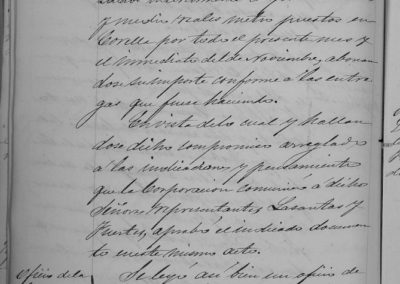 y medio reales metro puestos en
Corella por todo el presente mes y
el inmediato del de Noviembre, abonan
dose su importe conforme a las entre
gas que fuese haciendo.
En vista de lo cual y hallan
dose dicho compromiso arreglado
a las indicaciones y pensamiento
que la Corporacion comunicó a dichos
Señores representantes, Lasantas y
Fuertes, aprobó el indicado documen
to en este mismo acto.
Oficio de la
Se leyó asi bien un oficio de